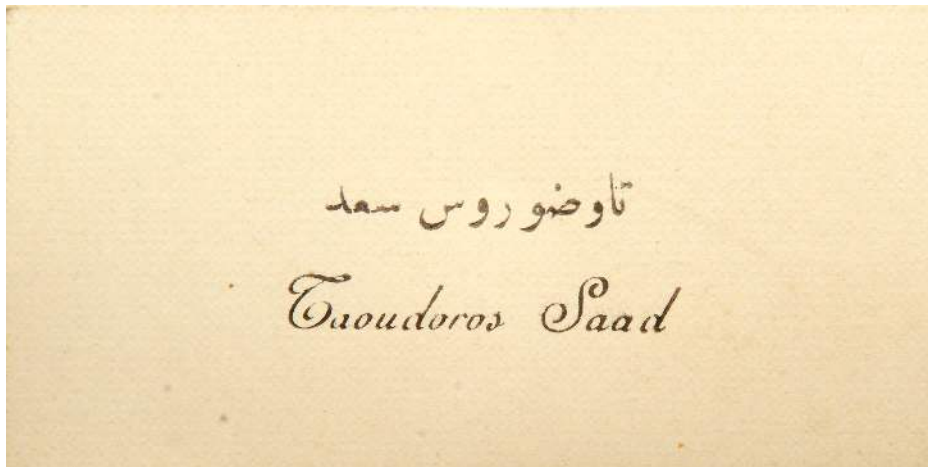 تاوضوروس سعد
Taoudoros Saad